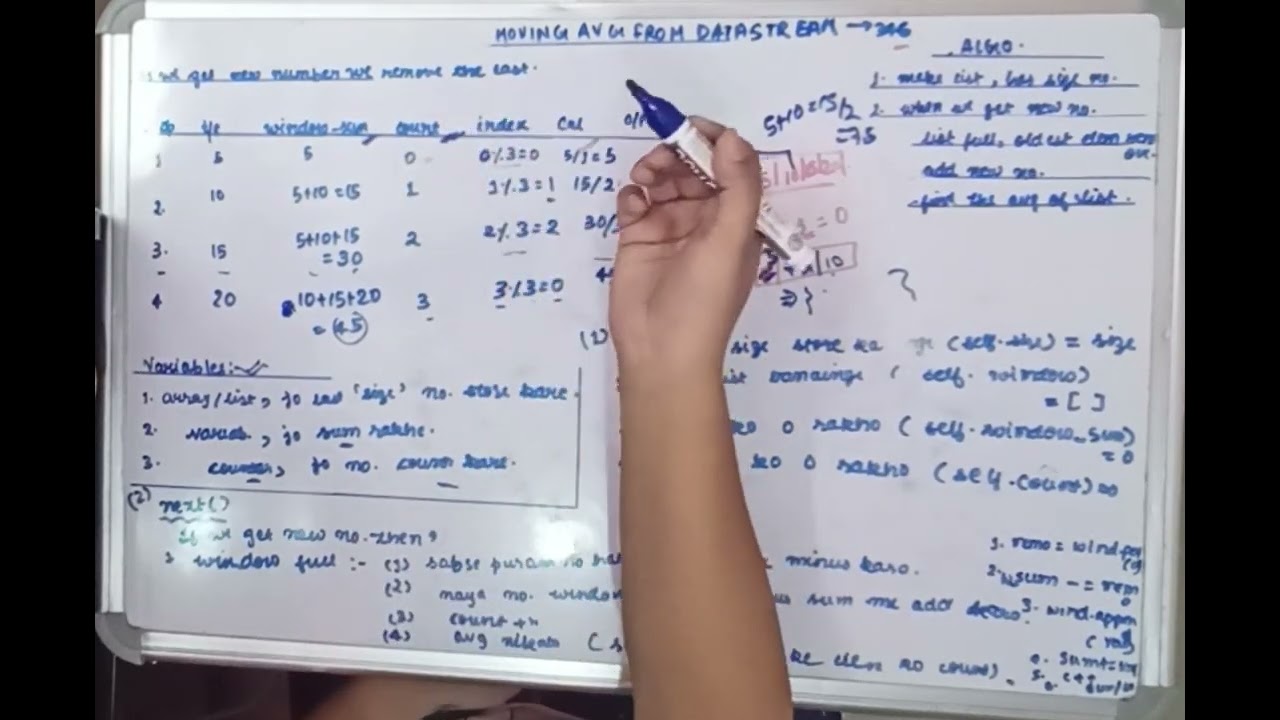 MOVING AVG FROM DATASTREAM → 346
we get new number we remove the last.
ALGO.
1. make list, has size no.
2. when we get new no.
list full, oldest elem remo
add new no.
find the avg of list.
5+10=15/2
=7.5
op i/p window-sum count index Cal O/P
1 5 5 0 0%3=0 5/1=5
2. 10 5+10=15 1 1%3=1 15/2
3. 15 5+10+15 = 30 2 2%3=2 30/
4 20 10+15+20 = 45 3 3%3=0
=0
10
⇒ }
}
(1)
size store ka (self.size) = size
(self.window)
= [ ]
ko 0 rakho (self.window_sum)
= 0
ko 0 rakho (self.count)=0
Variables:-
1. array/list, jo last 'size' no. store kare.
2. variab, jo sum rakhe.
3. counter, jo no. count kare.
(2) next()
if we get new no. then,
window full :- (1) sabse purana no minus karo.
(2) naya no. window sum me add karo.
(3) count +
(4) avg nikalo (s ko count)
1. remo = wind.pop
2. sum -= rem
3. wind.appen